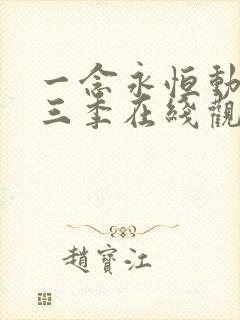 一念永恒動
三季在綫觀
趙寶江